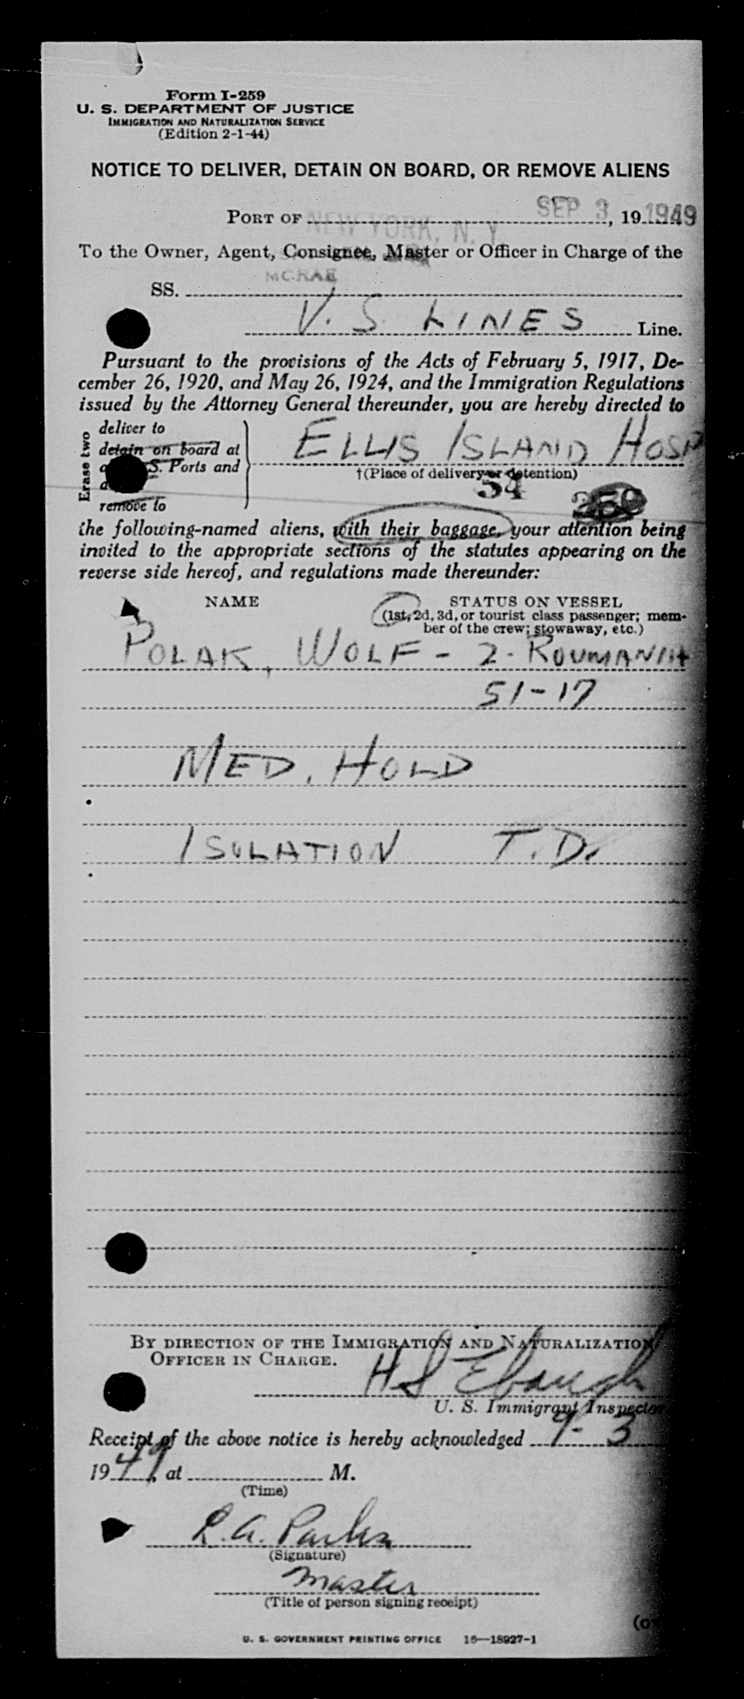 Form I-259
U. S. DEPARTMENT OF JUSTICE
IMMIGRATION AND NATURALIZATION SERVICE
(Edition 2-1-44)
NOTICE TO DELIVER, DETAIN ON BOARD, OR REMOVE ALIENS
PORT OF NEW YORK, N. Y. SEP 3, 19 1949
To the Owner, Agent, Consignee, Master or Officer in Charge of the
SS. MCRAE
V. S. LINES Line.
Pursuant to the provisions of the Acts of February 5, 1917, De-
cember 26, 1920, and May 26, 1924, and the Immigration Regulations
issued by the Attorney General thereunder, you are hereby directed to
Erase two
deliver to
detain on board at
S. Ports and
remove to
ELLIS ISLAND HOSP
†(Place of delivery or detention)
34 259
the following-named aliens, with their baggage, your attention being
invited to the appropriate sections of the statutes appearing on the
reverse side hereof, and regulations made thereunder:
NAME STATUS ON VESSEL
(1st, 2d, 3d, or tourist class passenger; mem-
ber of the crew; stowaway, etc.)
POLAK, WOLF - 2- ROUMANIA
51-17
MED. HOLD
ISOLATION T.D.
BY DIRECTION OF THE IMMIGRATION AND NATURALIZATION
OFFICER IN CHARGE.
H S Ebaugh
U. S. Immigrant Inspector
Receipt of the above notice is hereby acknowledged 9-3
1949, at M.
(Time)
R. A. Parks
(Signature)
Master
(Title of person signing receipt)
U. S. GOVERNMENT PRINTING OFFICE 16—18927-1